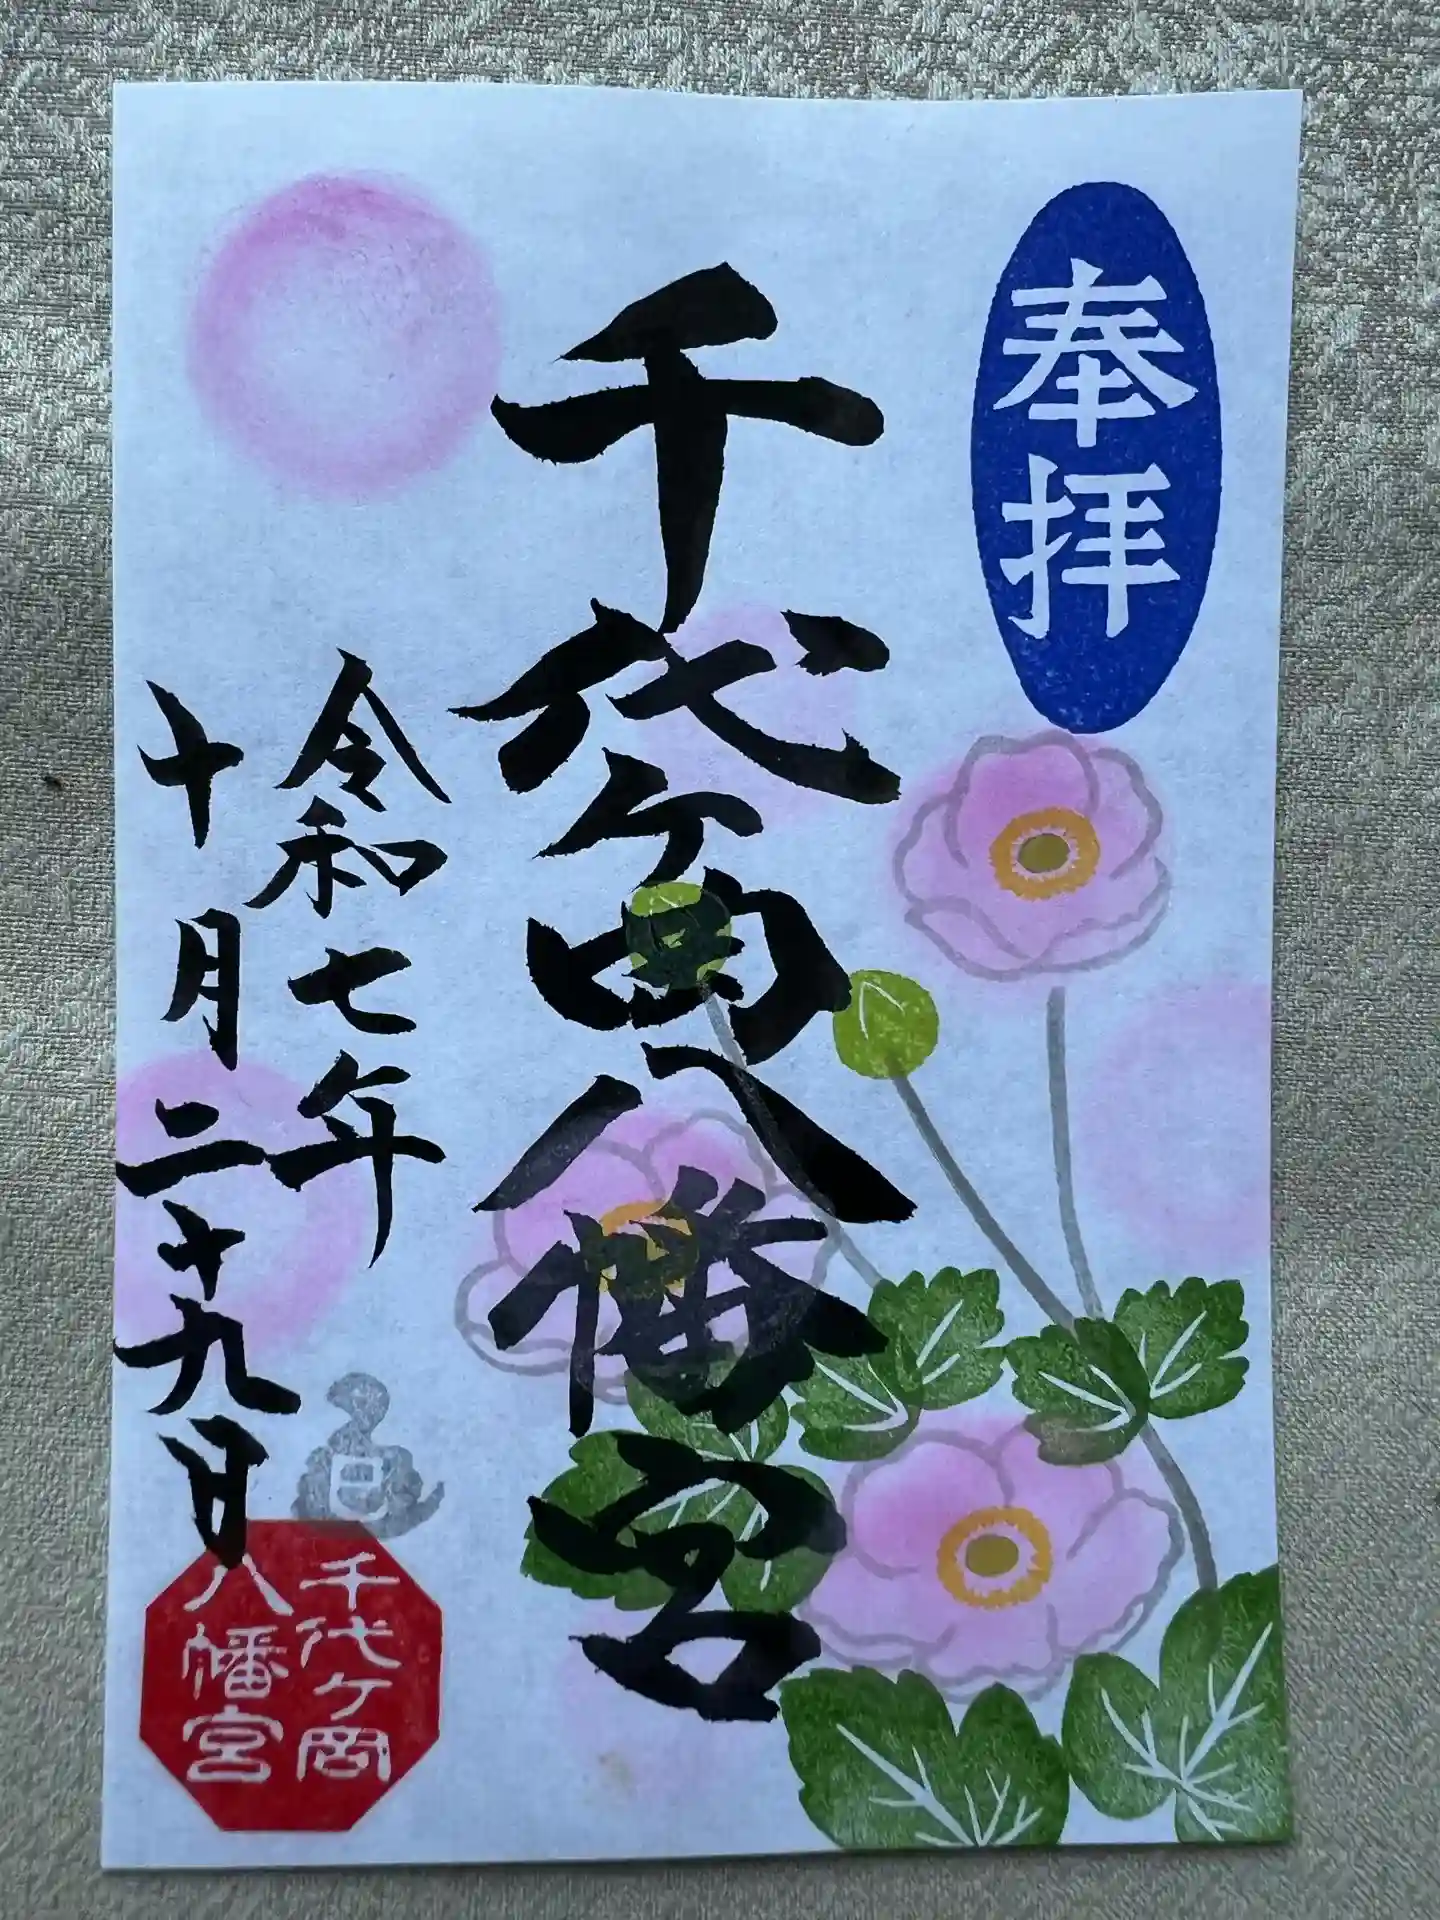 奉拝
千代ヶ岡八幡宮
令和七年
十月二十九日
千代ヶ岡
八幡宮